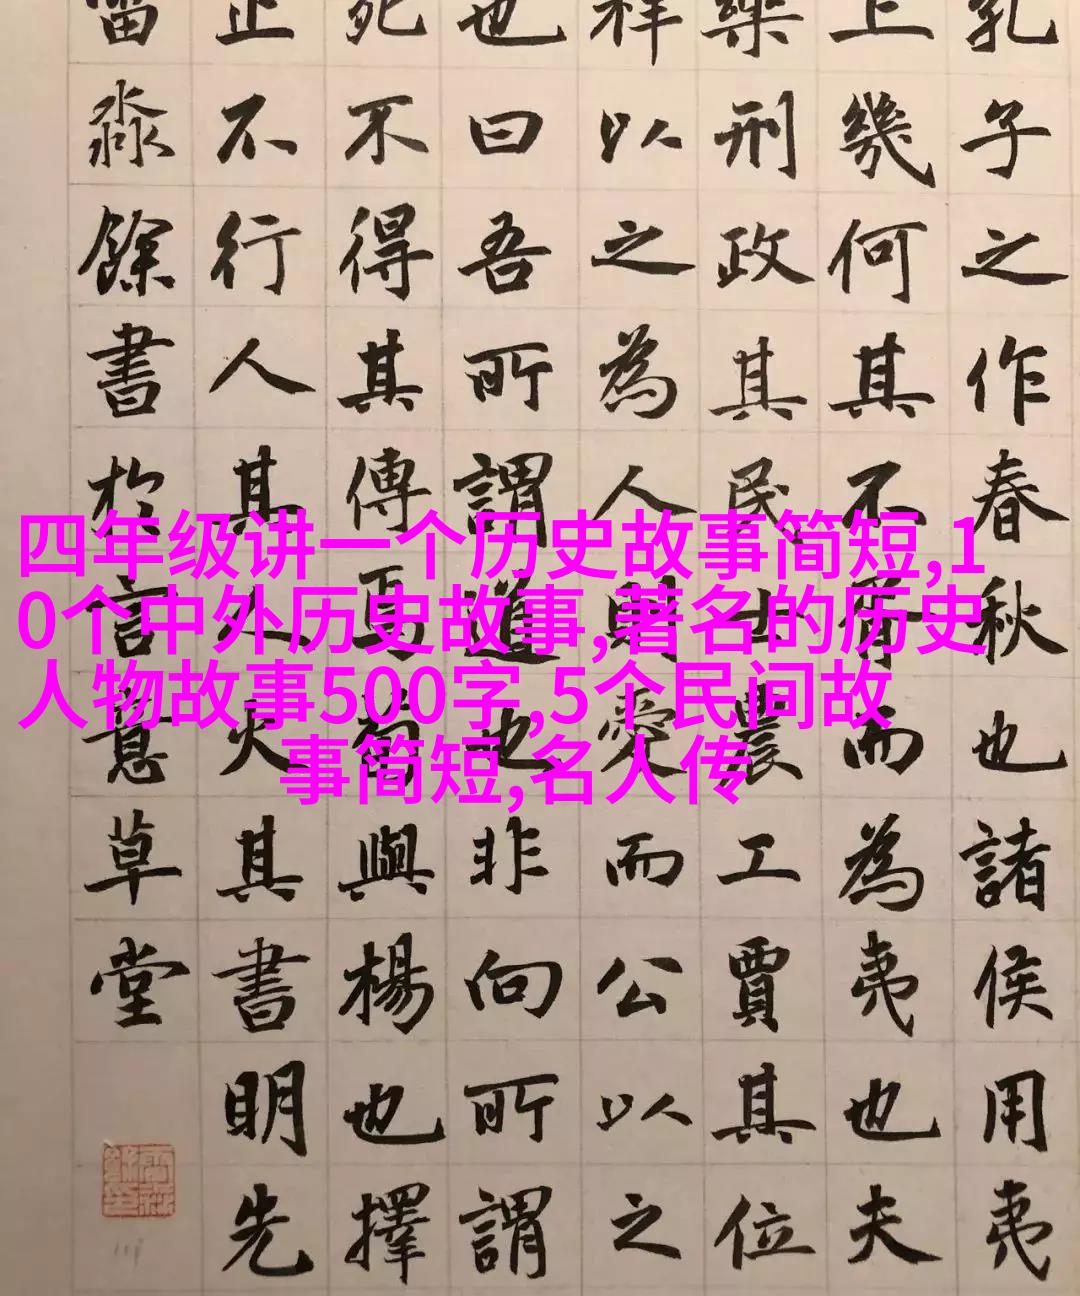 四年级讲一个历史故事简短,1
0个中外历史故事,著名的历史
人物故事500字,5个民间故
事简短,名人传
孔子之作春秋也諸侯用夷
上幾何其不胥而為夷也夫
樂刑政其民士農工賈其位
祥以之為人則愛而公以之
也曰吾所謂道也非向所謂
死不得其傳焉荀與楊也擇
止不行人其人火其書明先
淼餘書於言意草堂